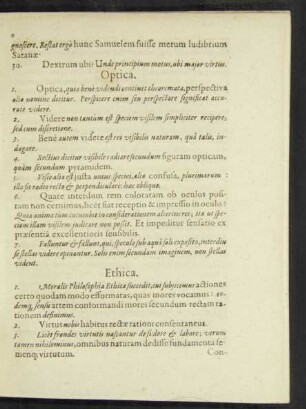 gnoscere. Restat ergò hunc Samuelem fuisse merum ludibrium
Satanæ.
30. Dextrum ubi? Unde principium motus, ubi major virtus.
Optica.
1. Optica, quia benè videndi continet theoremata, perspectiva
alio nomine dicitur. Perspicere enim seu perspectare significat accu-
rate videre.
2. Videre non tantum est speciem visilem simpliciter recipere,
sed cum discretione.
3. Benè autem videre est rei visibilis naturam, quâ talis, in-
dagare.
4. Rectius dicitur visibile radiare secundum figuram opticam,
quàm secundum pyramidem.
5. Visio alia est justa unius speciei, alia confusa, plurimarum:
illa fit radio recto & perpendiculari: hæc obliquè.
6. Quare interdum rem coloratam ob oculos po-
sitam non cernimus, licèt fiat receptio & impressio in oculo?
Quia animo tum cucumbit in considerationem alterius rei; ita ut spe-
ciem illam visilem judicare non possit. Et impeditur sensario ex
præsentia excellentioris sensibilis.
7. Falluntur & fallunt, qui, speculo sub aquâ soli exposito, interdiu
se stellas videre opinantur. Solis enim secundam imaginem, non stellas
vident.
Ethica.
1. Morali Philosophia Ethica succedit, cui subjiciuntur actiones
certo quodam modo efformatæ, quas mores vocamus:
autem conformandi mores secundum rectam ra-
tionem definimus.
2. Virtus nobis habitus rectæ rationi consentaneus.
3. Licèt frondes virtutis nascantur desidore & labore; verum
tamen nihilominus, omnibus naturam dedisse fundamenta se-
menq; virtutum.
Con-